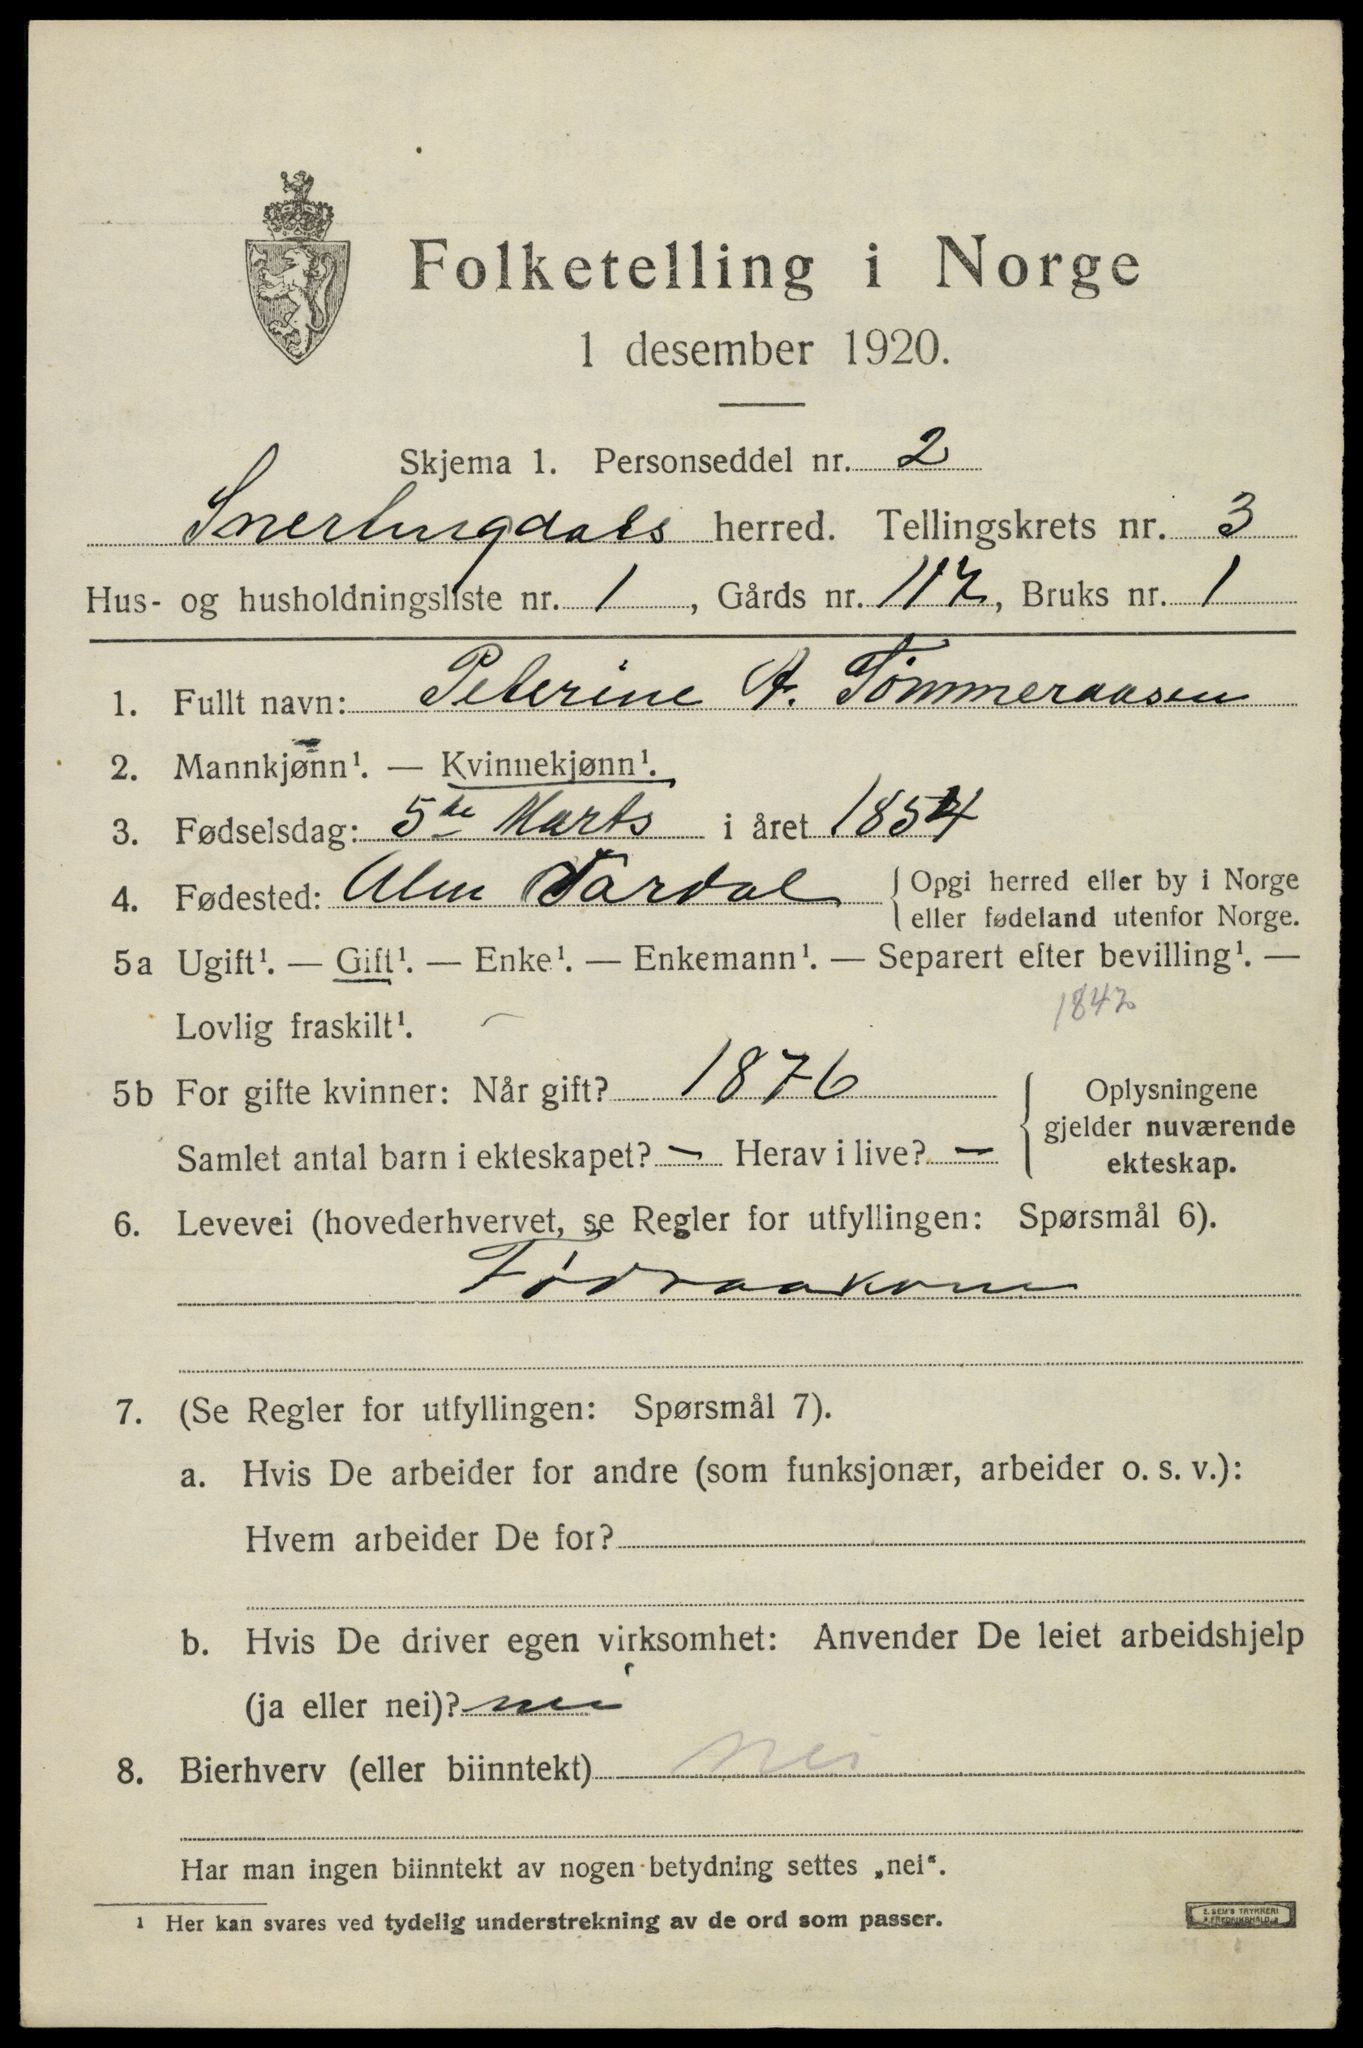 Folketelling i Norge
1 desember 1920.
Skjema 1. Personseddel nr. 2
Snertingdals herred. Tellingskrets nr. 3
Hus- og husholdningsliste nr. 1, Gårds nr. 117, Bruks nr. 1
1. Fullt navn: Peterine A. Tømmeraasen
2. Mannkjønn¹. — Kvinnekjønn¹.
3. Fødselsdag: 5te Marts i året 1854
4. Fødested: Vardal { Opgi herred eller by i Norge
eller fødeland utenfor Norge.
5a Ugift¹. — Gift¹. — Enke¹. — Enkemann¹. — Separert efter bevilling¹. —
Lovlig fraskilt¹. 1847
5b For gifte kvinner: Når gift? 1876
Samlet antal barn i ekteskapet? — Herav i live? —
Oplysningene
gjelder nuværende
ekteskap.
6. Levevei (hovederhvervet, se Regler for utfyllingen: Spørsmål 6).
Fødraadkone
7. (Se Regler for utfyllingen: Spørsmål 7).
a. Hvis De arbeider for andre (som funksjonær, arbeider o. s. v.):
Hvem arbeider De for?
b. Hvis De driver egen virksomhet: Anvender De leiet arbeidshjelp
(ja eller nei)? nei
8. Bierhverv (eller biinntekt) Nei
Har man ingen biinntekt av nogen betydning settes „nei“.
¹ Her kan svares ved tydelig understrekning av de ord som passer.
E. SEM'S TRYKKERI
FREDRIKSHALD